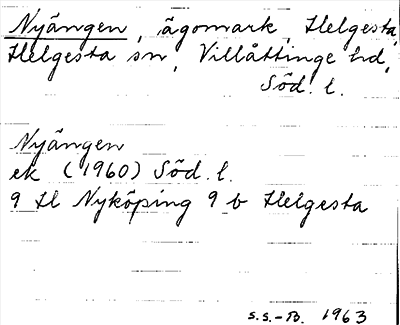 Nyängen, ägomark, Helgesta,
Helgesta sn, Villåttinge hd,
Söd. l.
Nyängen
ek (1960) Söd. l.
9 H Nyköping 9 b Helgesta
s.s.-B. 1963